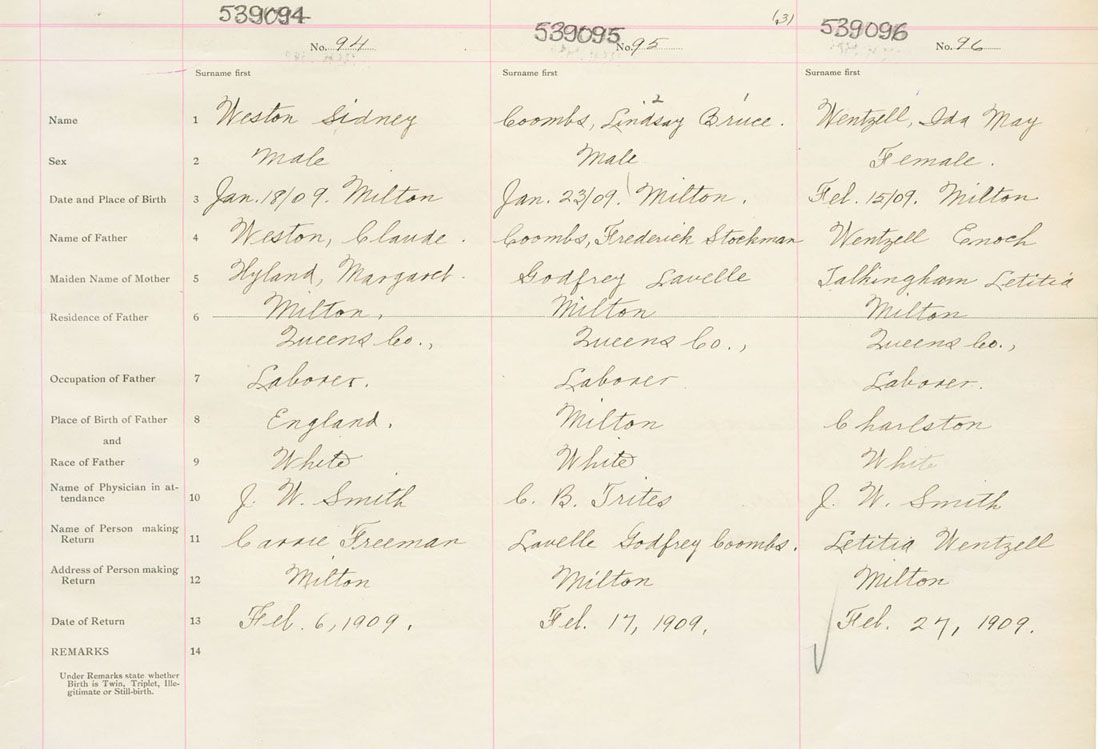 539094 539095 (3) 539096
No. 94 No. 95 No. 96
Surname first Surname first Surname first
2 1
Name 1 Weston Sidney Coombs, Lindsay Bruce. Wentzell, Ida May
Sex 2 Male Male Female.
Date and Place of Birth 3 Jan. 18/09. Milton Jan. 23/09. Milton. Feb. 15/09. Milton
Name of Father 4 Weston, Claude. Coombs, Frederick Stockman Wentzell Enoch
Maiden Name of Mother 5 Hyland, Margaret. Godfrey Lavelle Talkingham Letitia
Residence of Father 6 Milton, Milton Milton
Queens Co., Queens Co., Queens Co.,
Occupation of Father 7 Laborer. Laborer Laborer.
Place of Birth of Father 8 England. Milton Charlston
and
Race of Father 9 White White White
Name of Physician in at-
tendance 10 J. W. Smith C. B. Trites J. W. Smith
Name of Person making
Return 11 Carrie Freeman Lavelle Godfrey Coombs. Letitia Wentzell
Address of Person making
Return 12 Milton Milton Milton
Date of Return 13 Feb. 6, 1909. Feb. 17, 1909. Feb. 27, 1909.
REMARKS 14
Under Remarks state whether
Birth is Twin, Triplet, Ille-
gitimate or Still-birth.